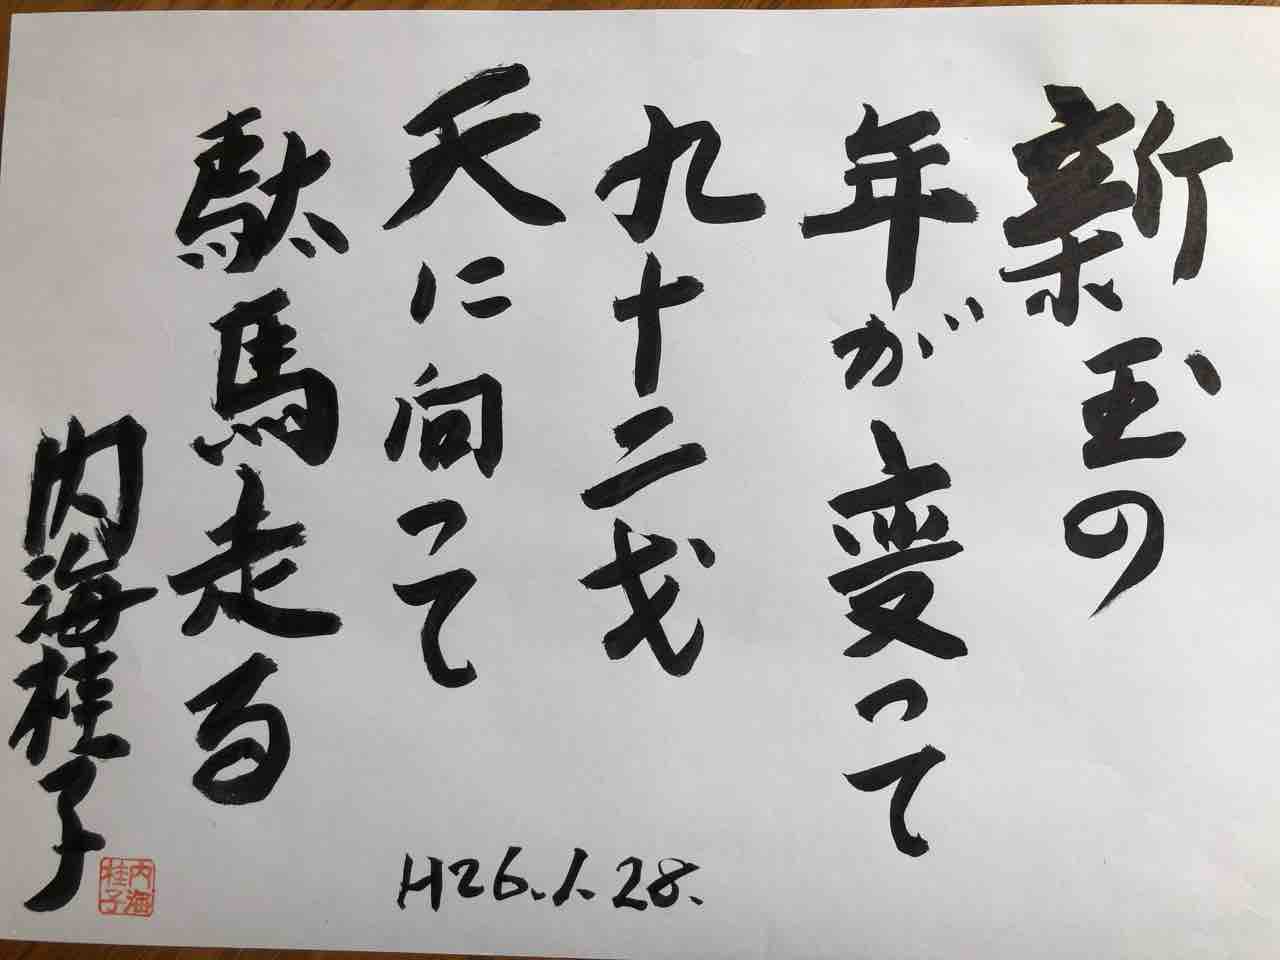 新玉の
年が変って
九十二才
天に向って
駄馬走る
内海桂子
内海
桂子
H26.1.28.